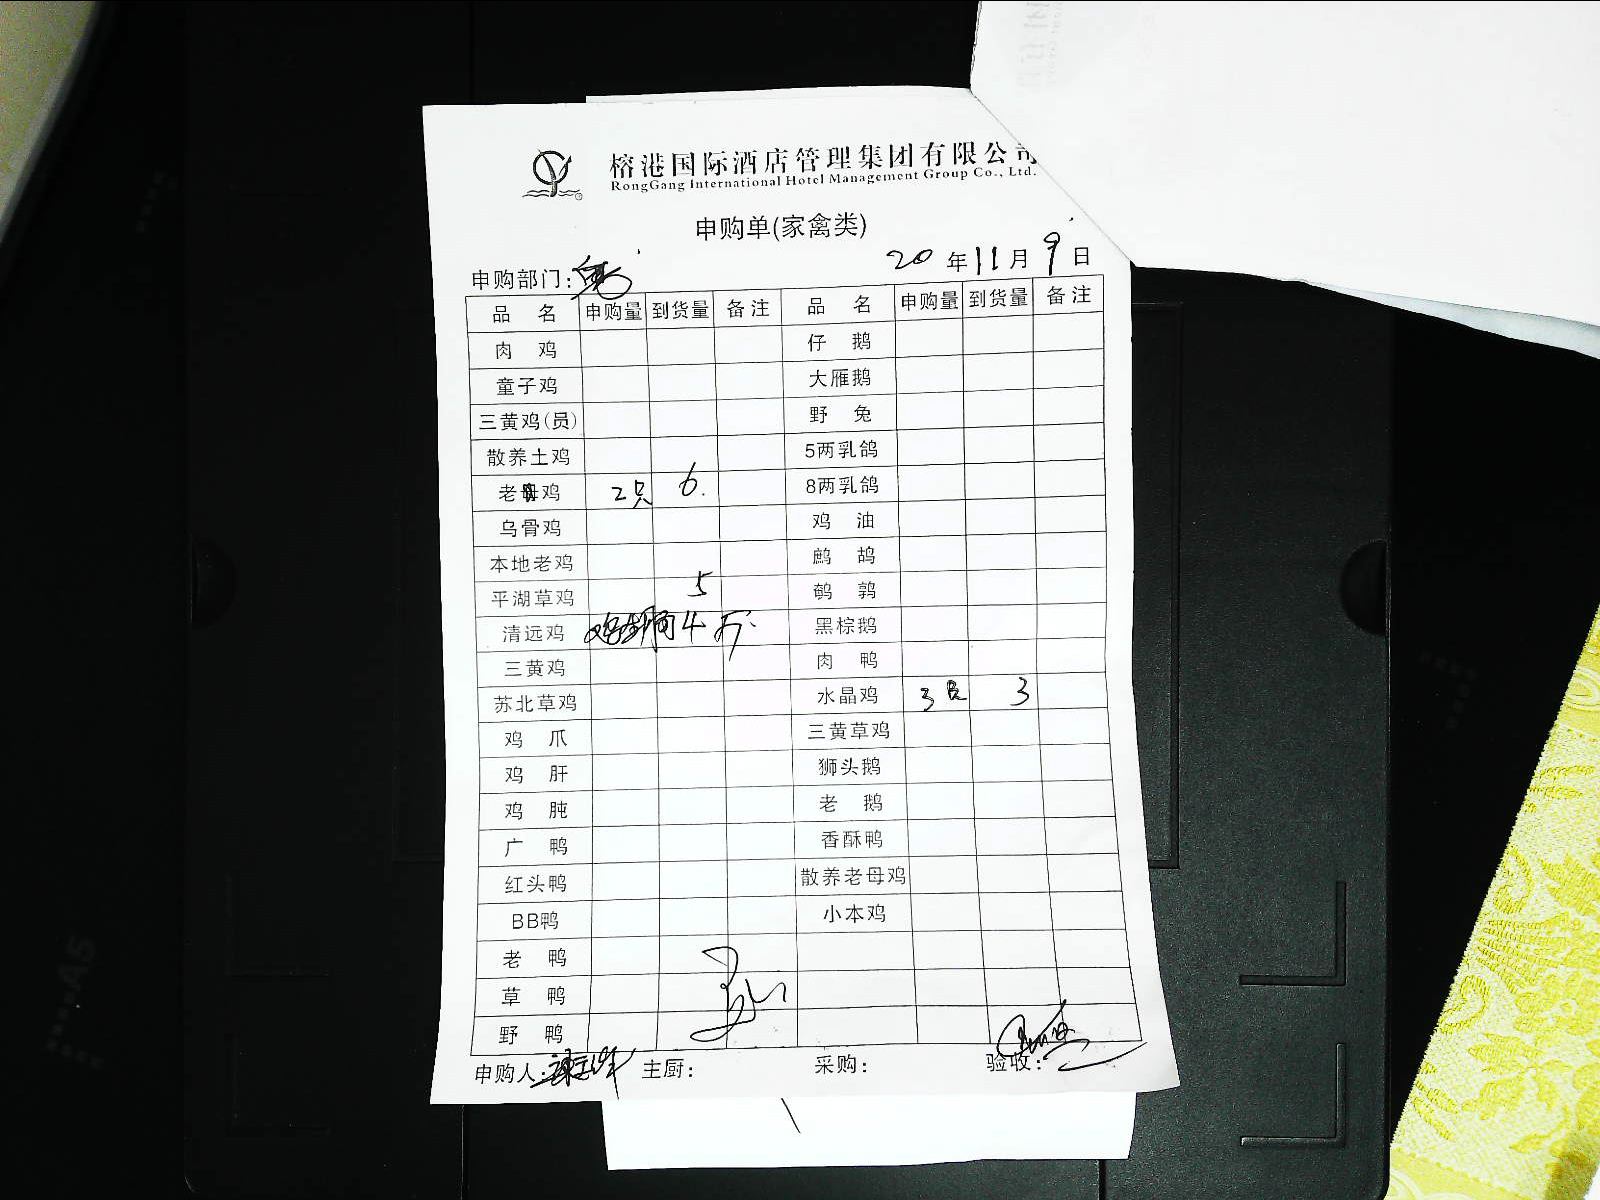 榕港国际酒店管理集团有限公司
RongGang International Hotel Management Group Co., Ltd.
申购单(家禽类)
20 年 11 月 9 日
申购部门:
品 名 申购量 到货量 备注 品 名 申购量 到货量 备注
肉 鸡 仔 鹅
童子鸡 大雁鹅
三黄鸡(员) 野 兔
散养土鸡 5两乳鸽
老母鸡 2只 6. 8两乳鸽
乌骨鸡 鸡 油
本地老鸡 鹧 鸪
平湖草鸡 5 鹌 鹑
清远鸡 鸡胸 4斤 黑棕鹅
三黄鸡 肉 鸭
苏北草鸡 水晶鸡 3只 3
鸡 爪 三黄草鸡
鸡 肝 狮头鹅
鸡 肫 老 鹅
广 鸭 香酥鸭
红头鸭 散养老母鸡
BB鸭 小本鸡
老 鸭
草 鸭
野 鸭
申购人: 主厨: 采购: 验收:
A5